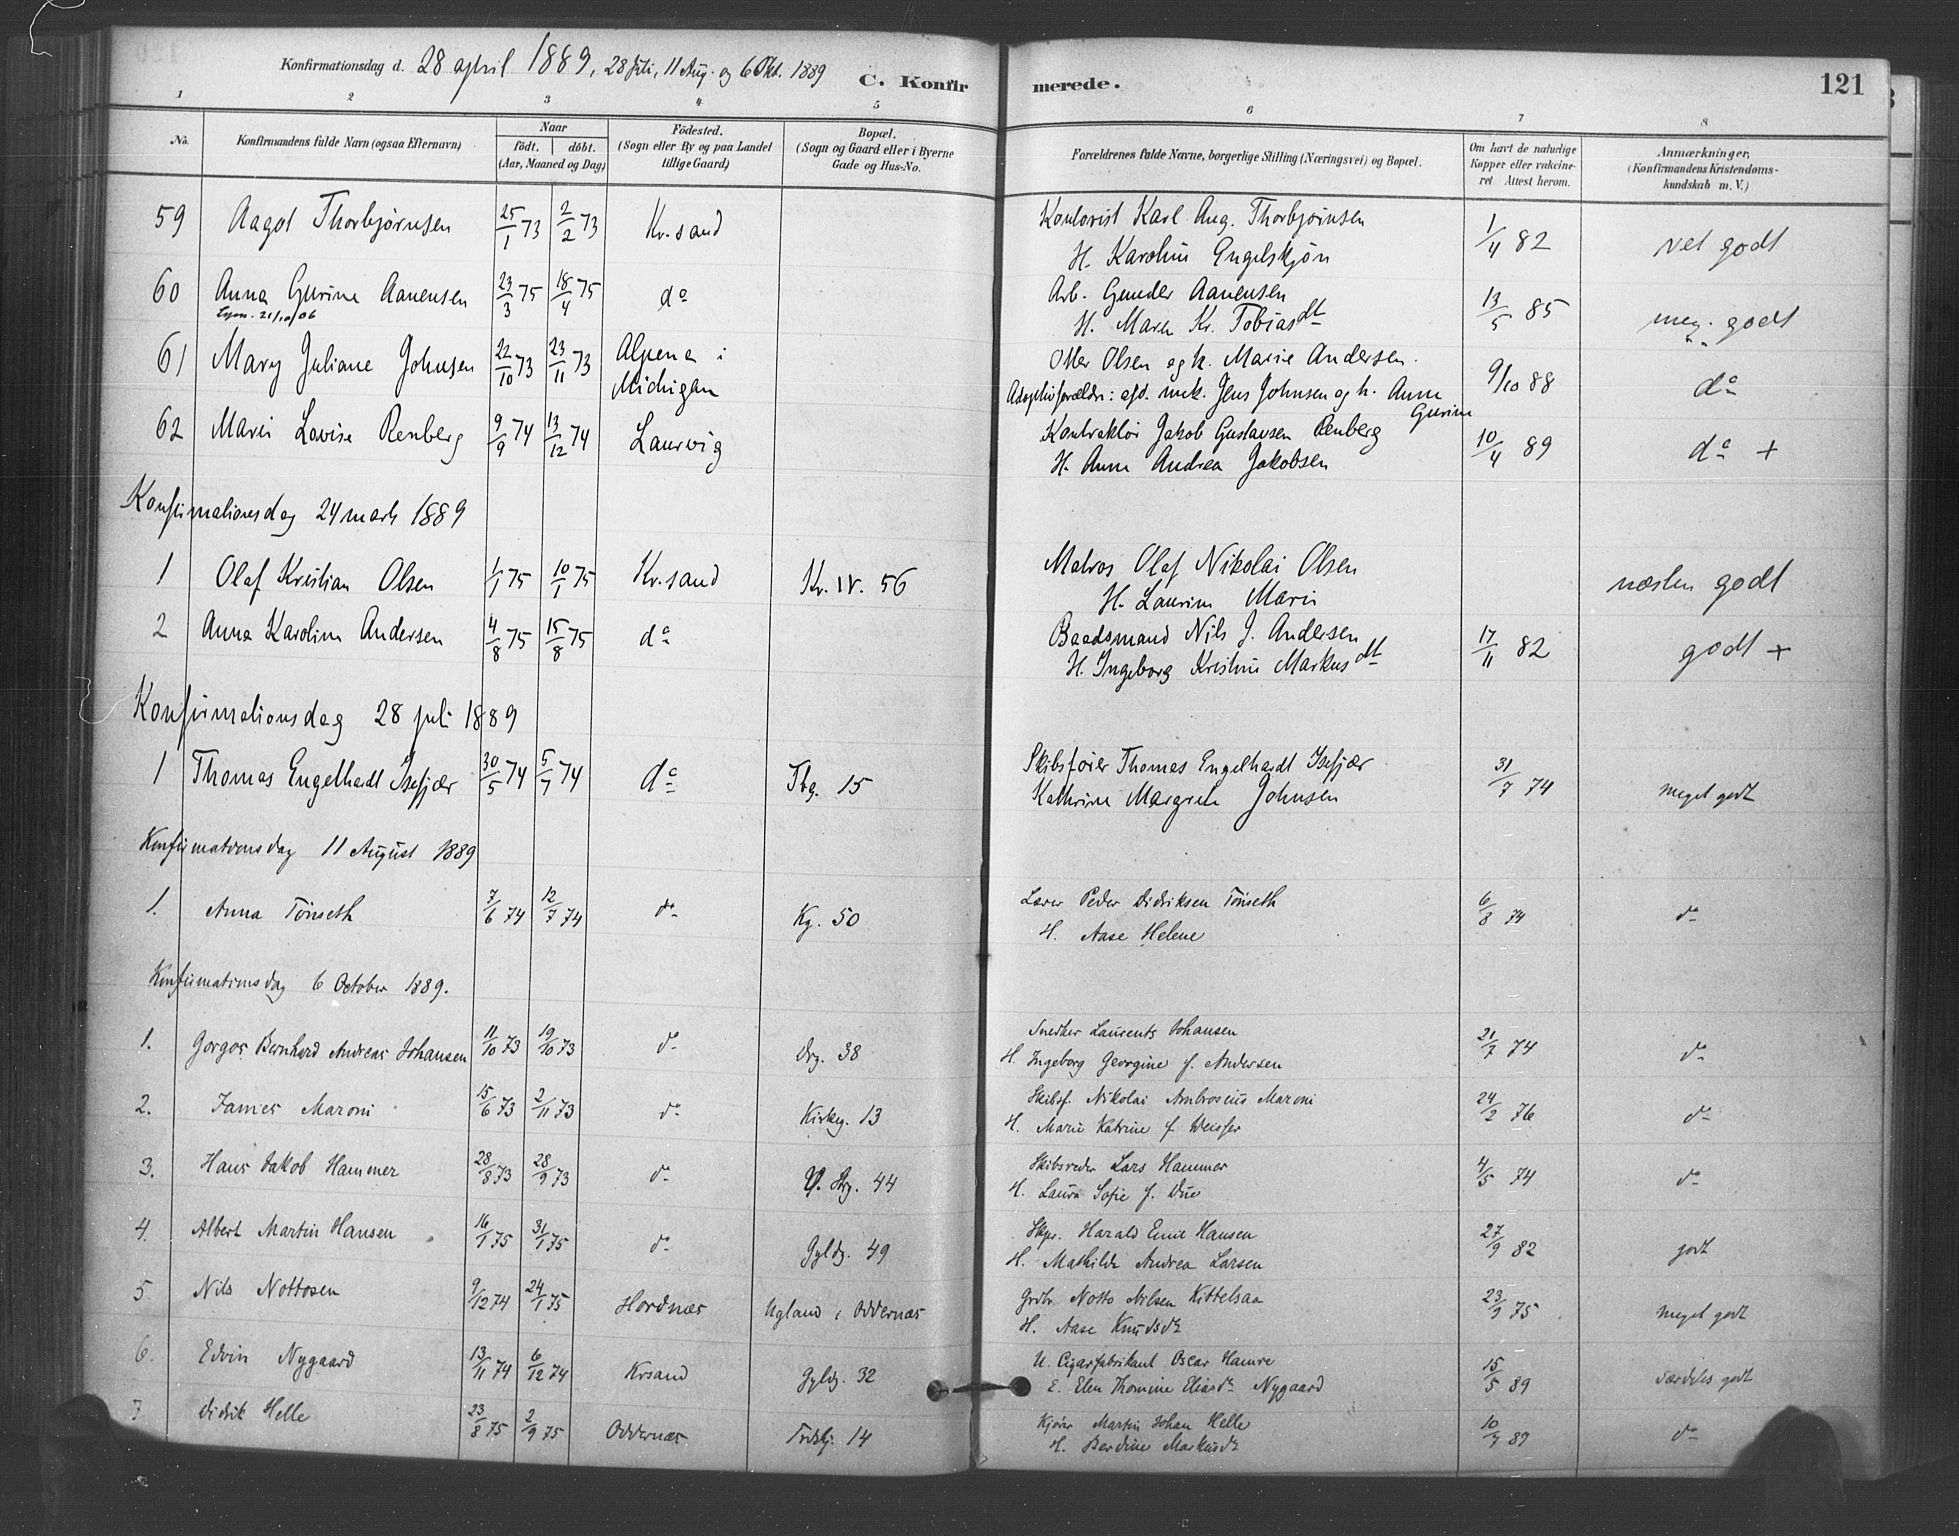 Konfirmationsdag d. 28 april 1889, 28 juli, 11 Aug. og 6 Okt. 1889
C. Konfirmerede.
121
1 2 3 4 5 6 7 8
No. Konfirmandens fulde Navn (ogsaa Efternavn) Naar födt. döbt. (Aar, Maaned og Dag) Födested. (Sogn eller By og paa Landet tillige Gaard) Bopæl. (Sogn og Gaard eller i Byerne Gade og Hus-No. Forældrenes fulde Navne, borgerlige Stilling (Næringsvei) og Bopæl. Om havt de naturlige Kopper eller vakcineret Attest herom. Anmærkninger, (Konfirmandens Kristendomskundskab m. V.)
59 Aagot Thorbjørnsen 25/1 73 2/2 73 Kr.sand Kontorist Karl Aug. Thorbjørnsen 1/4 82 vel godt
H. Karoline Engelskjøn
60 Anna Gurine Aanensen 23/3 75 18/4 75 do Arb. Gunder Aanensen 13/5 85 meg. godt
21/10/06 H. Maren Kr. Tobiasdt
61 Mary Juliane Johnsen 22/10 73 23/11 73 Alpena i Otter Olsen og h. Marie Andersen. 9/10 88 do
Michigan Adoptivforældre: afd. mek. Jens Johnsen og h. Anne
Gurine
62 Marie Lovise Renberg 9/9 74 13/12 74 Laurvig Kontraktør Jakob Gustavsen Renberg 10/4 89 do +
H. Anne Andrea Jakobsen
Konfirmationsdag 24 marts 1889
1 Olaf Kristian Olsen 1/1 75 10/1 75 Kr.sand Kv. IV. 56 Matros Olaf Nikolai Olsen næsten godt
H. Laurine Marie
2 Anna Karoline Andersen 4/8 75 15/8 75 do Baadsmand Nils J. Andersen 17/11 82 godt +
H. Ingeborg Kristine Markusdt
Konfirmationsdag 28 juli 1889
1 Thomas Engelhadt Isefjær 30/5 74 5/7 74 do Tbg. 15 Skibsfører Thomas Engelhardt Isefjær 31/7 74 meget godt
Kathrine Margrete Johnsen
Konfirmationsdag 11 August 1889
1. Anna Tönseth 7/6 74 12/7 74 do Kg. 50 Lærer Peder Didriksen Tönseth 6/8 74 do
H. Aase Helene
Konfirmationsdag 6 October 1889.
1. Gorgas Bernhard Andreas Johansen 11/10 73 19/10 73 do Drg. 38 Snedker Laurents Johansen 21/7 74 do
H. Ingeborg Georgine f. Andersen
2. James Maroni 15/6 73 2/11 73 do Kirkeg. 13 Skibsf. Nikolai Ambrosius Maroni 24/2 76 do
H. Marie Katrine f Weisser
3. Hans Jakob Hammer 28/8 73 28/9 73 do V. Strg. 44 Skibsreder Lars Hammer 4/5 74 do
H. Laura Sofie f. Due
4. Albert Martin Hansen 16/1 75 31/1 75 do Gyldg. 49 Skpr. Harald Emil Hansen 27/9 82 godt
H. Mathilde Andrea Larsen
5 Nils Nottosen 9/12 74 24/1 75 Hordnæs Ugland i Oddernæs Grdbr. Notto Nilsen Kittelsaa 23/9 75 meget godt
H. Aase Knudsdt
6. Edvin Nygaard 13/11 74 6/12 74 Krsand Gyldg. 32 U. Cigarfabrikant Oscar Hamre 15/5 89 særdeles godt
E. Elen Thomine Eliasdt Nygaard
7 Didrik Helle 23/8 75 2/9 75 Oddernæs 14 Kjører Martin Johan Helle 10/7 89 do
H. Berdine Markusdt